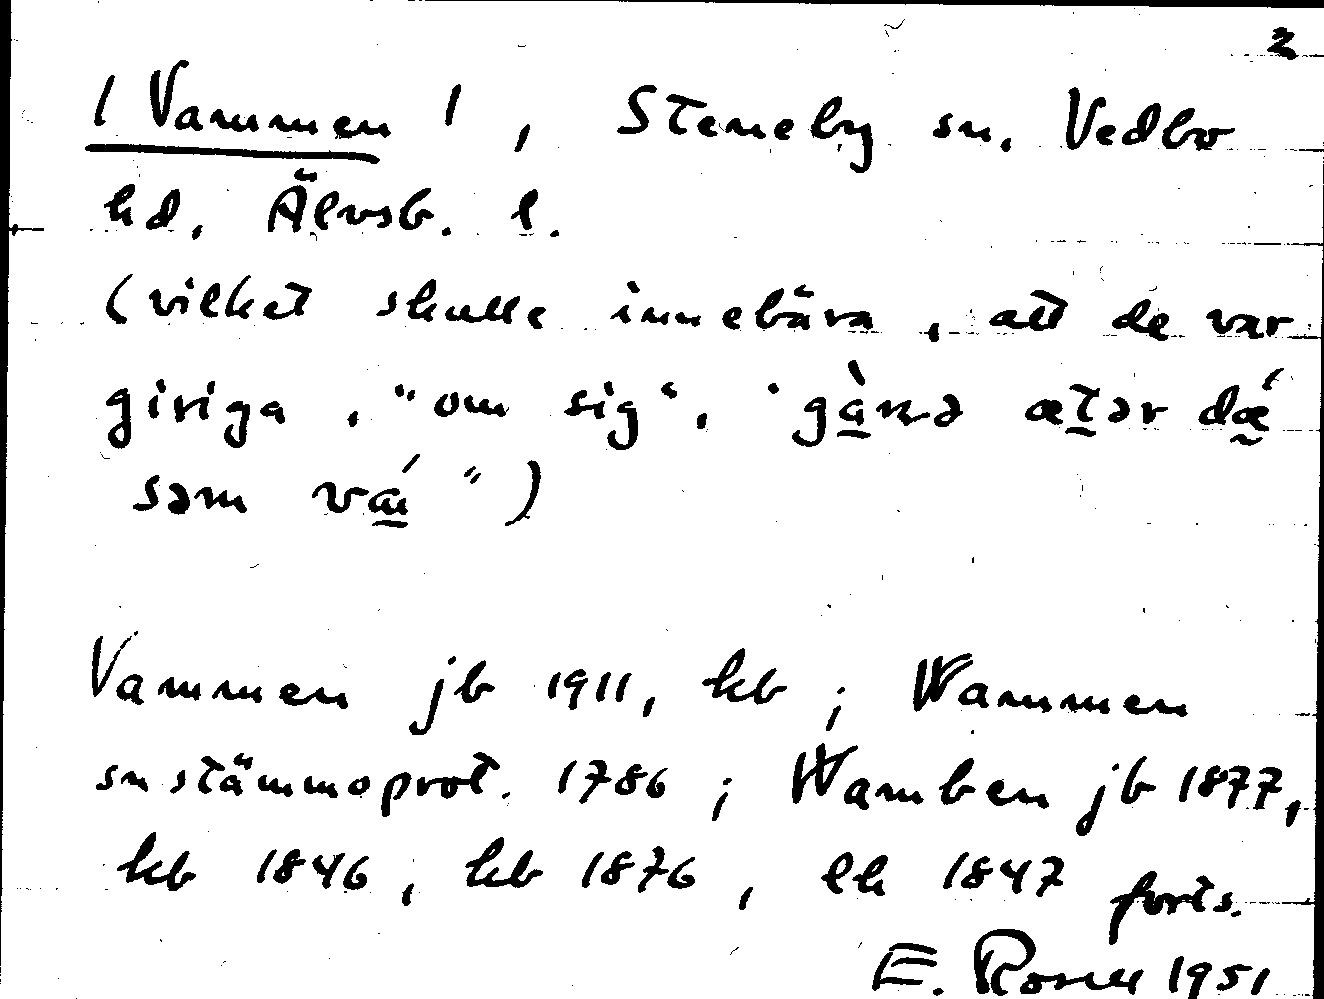 2
/ Vammen /, Steneby sn. Vedbo
hd. Älvsb. l.
(vilket skulle innebära, att de var
giriga, "om sig",
som
Vammen jb 1911, kb ; Wammen
sn stämmoprot. 1786 ; Wamben jb 1877,
kb 1846, kb 1876, lh 1847 forts.
E. 1951